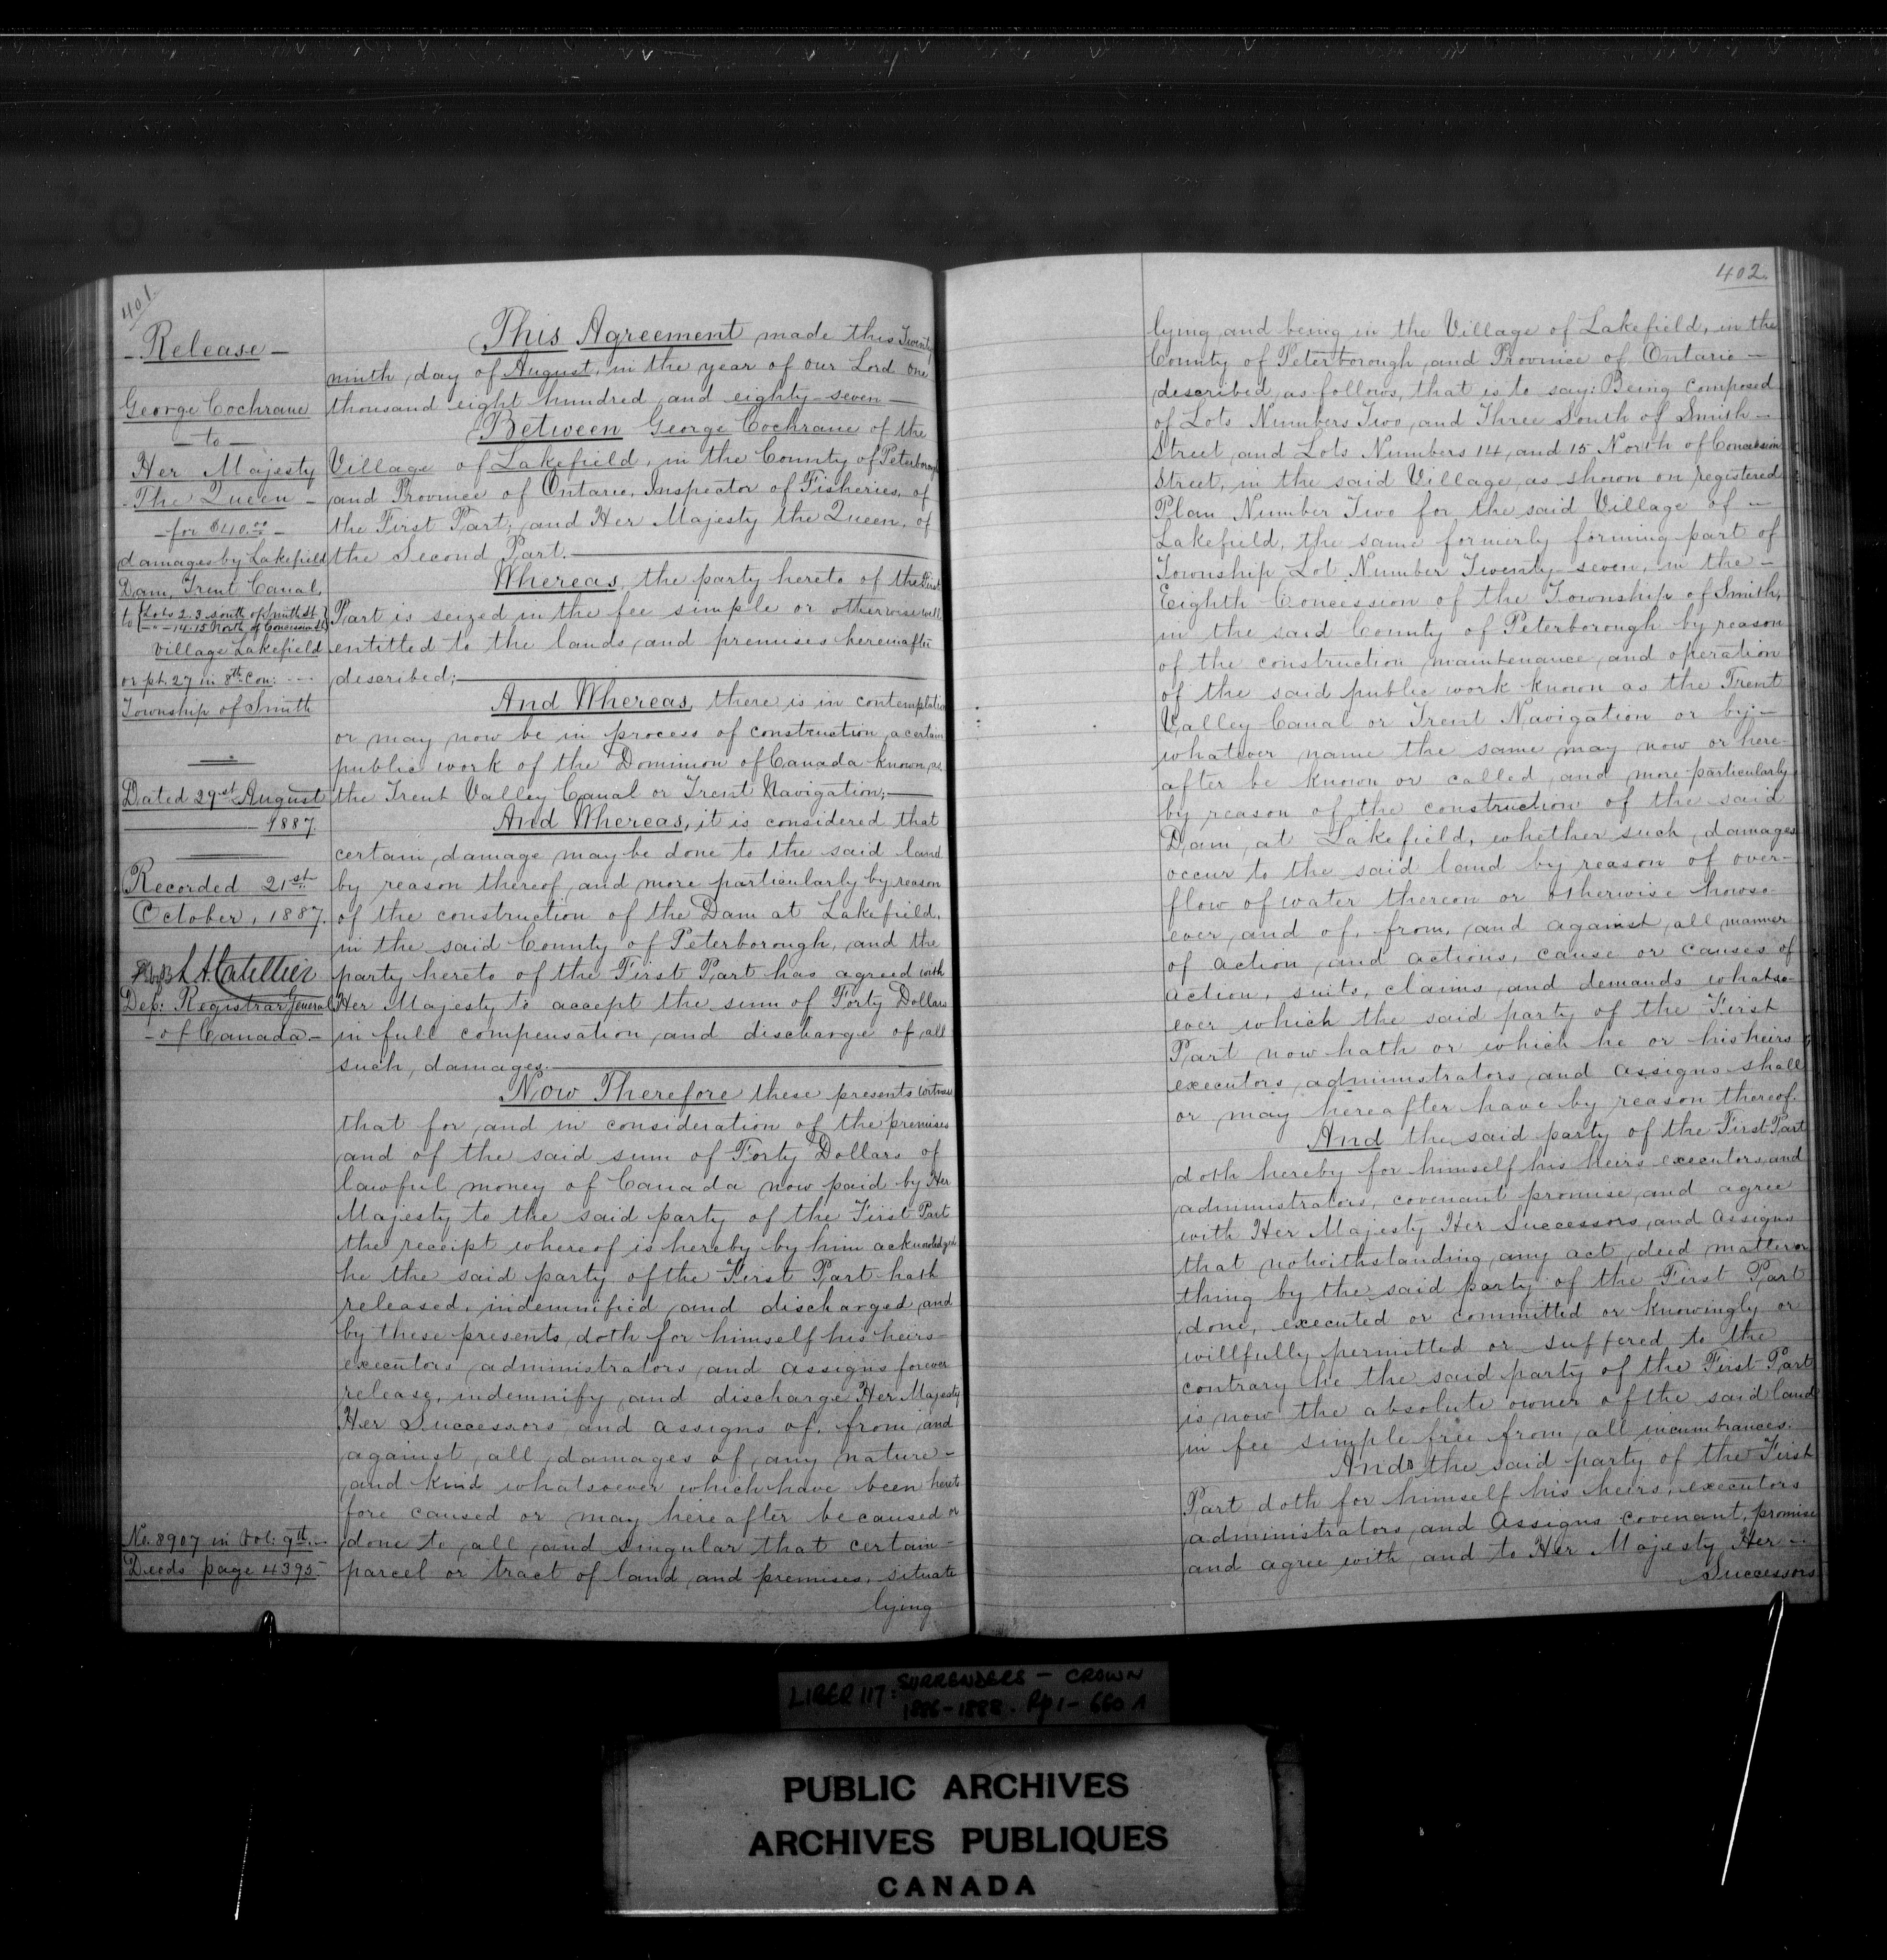 401.
- Release -
George Cochrane
- to -
Her Majesty
- The Queen -
- for $40.00 -
damages by Lakefield
Dam, Trent Canal,
to Lots 2.3 south of Smith St
- " - 14.15 North of Concession St
Village Lakefield
or pt. 27 in 8th Con:
Township of Smith
Dated 29st August
1887.
Recorded 21st
October, 1887.
L A Catellier
Dep: Registrar General
- of Canada -
No. 8907 in Vol: 9th
Deeds page 4395
This Agreement made this Twenty
ninth day of August, in the year of our Lord one
thousand eight hundred and eighty-seven —
Between George Cochrane of the
Village of Lakefield, in the County of Peterborough
and Province of Ontario, Inspector of Fisheries, of
the First Part, and Her Majesty the Queen, of
the Second Part. —
Whereas the party hereto of the First
Part is seized in the fee simple or otherwise well
entitled to the lands and premises hereinafter
described; —
And Whereas, there is in contemplation
or may now be in process of construction a certain
public work of the Dominion of Canada known as
the Trent Valley Canal or Trent Navigation; —
And Whereas, it is considered that
certain damage may be done to the said land
by reason thereof and more particularly by reason
of the construction of the Dam at Lakefield,
in the said County of Peterborough, and the
party hereto of the First Part has agreed with
Her Majesty to accept the sum of Forty Dollars
in full compensation and discharge of all
such damages. —
Now Therefore these presents witness
that for and in consideration of the premises
and of the said sum of Forty Dollars of
lawful money of Canada now paid by Her
Majesty to the said party of the First Part
the receipt whereof is hereby by him acknowledged
he the said party of the First Part hath
released, indemnified and discharged and
by these presents doth for himself his heirs
executors administrators and assigns forever
release, indemnify and discharge Her Majesty
Her Successors and assigns of, from and
against all damages of any nature -
and kind whatsoever which have been hereto
fore caused or may hereafter be caused or
done to all and singular that certain -
parcel or tract of land and premises, situate
lying
402.
lying and being in the Village of Lakefield, in the
County of Peterborough and Province of Ontario —
described as follows, that is to say: Being composed
of Lots Numbers Two and Three South of Smith -
Street and Lots Numbers 14 and 15 North of Concession
Street, in the said Village as shown on registered
Plan Number Two for the said Village of -
Lakefield, the same formerly forming part of
Township Lot Number Twenty-seven, in the -
Eighth Concession of the Township of Smith,
in the said County of Peterborough by reason
of the construction maintenance and operation
of the said public work known as the Trent
Valley Canal or Trent Navigation or by -
whatever name the same may now or here-
after be known or called and more particularly
by reason of the construction of the said
Dam at Lakefield, whether such damages
occur to the said land by reason of over-
flow of water thereon or otherwise howso-
ever and of, from, and against all manner
of action and actions, cause or causes of
action, suits, claims and demands whatso-
ever which the said party of the First
Part now hath or which he or his heirs
executors, administrators and assigns shall
or may hereafter have by reason thereof.
And the said party of the First Part
doth hereby for himself his heirs executors and
administrators, covenant promise and agree
with Her Majesty Her Successors and Assigns
that notwithstanding any act, deed matter or
thing by the said party of the First Part
done, executed or committed or knowingly or
willfully permitted or suffered to the
contrary he the said party of the First Part
is now the absolute owner of the said land
in fee simple free from all incumbrances.
And the said party of the First
Part doth for himself his heirs, executors
administrators and Assigns covenant, promise
and agree with and to Her Majesty Her -
Successors
LIBER 117: SURRENDERS - CROWN
1886-1888. Pp 1-660 A
PUBLIC ARCHIVES
ARCHIVES PUBLIQUES
CANADA